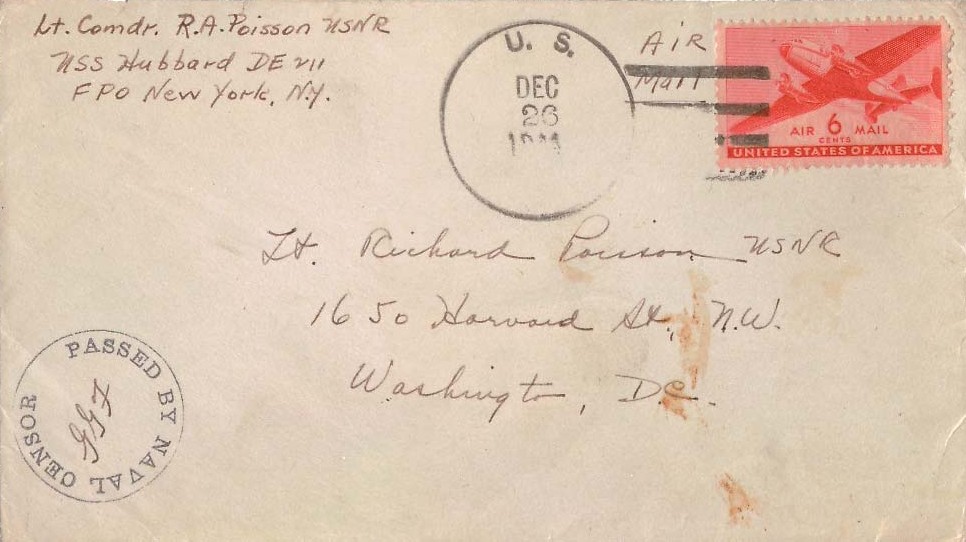 Lt. Comdr. R.A. Poisson USNR
USS Hubbard DE 211
FPO New York, N.Y.
U. S.
DEC
26
AIR
Mail
AIR 6 MAIL
CENTS
UNITED STATES OF AMERICA
Lt. Richard Poisson USNR
1650 Harvard St., N.W.
Washington, D.C.
PASSED BY NAVAL CENSOR